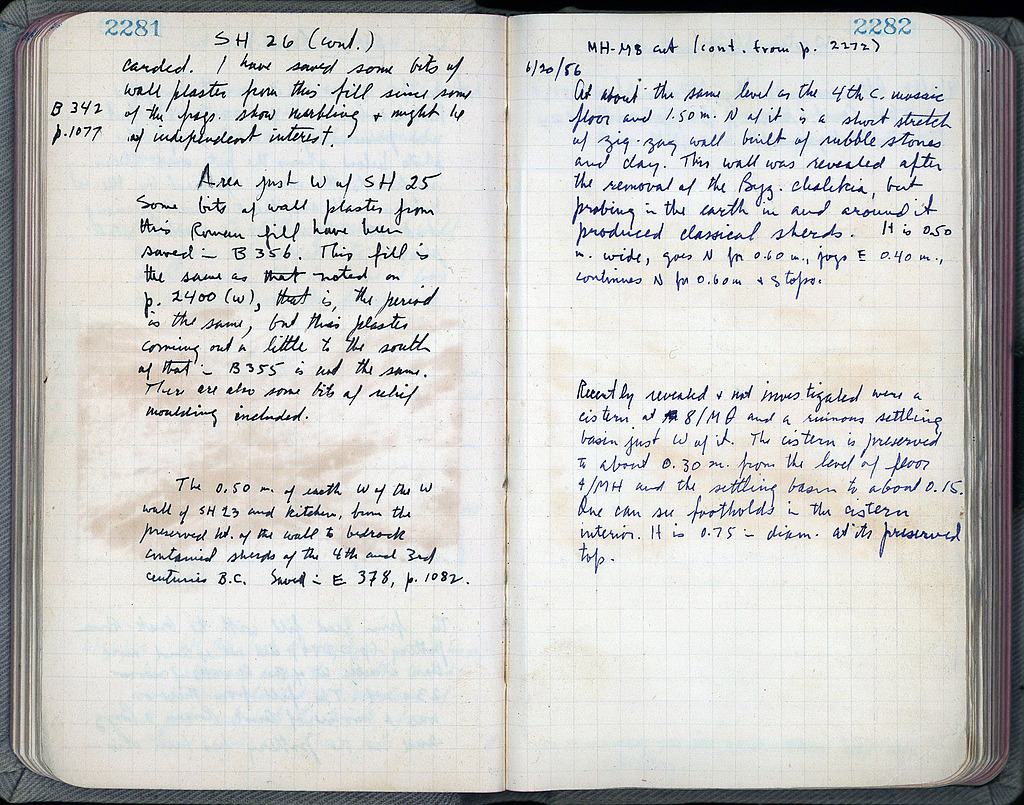 2281
SH 26 (cont.)
carded. I have saved some bits of
wall plaster from this fill since some
B 342
of the frags. show marbling & might be
p. 1077
of independent interest.
Area just W of SH 25
Some bits of wall plaster from
this Roman fill have been
saved - B 356. This fill is
the same as that noted on
p. 2400 (W), that is, the period
is the same, but this plaster
coming out a little to the south
of that - B 355 is not the same.
There are also some bits of relief
moulding included.
The 0.50 m. of earth W of the W
wall of SH 23 and kitchen, from the
preserved ht. of the wall to bedrock
contained sherds of the 4th and 3rd
centuries B.C. Saved - E 378, p. 1082.
2282
MH-M8 (cont. from p. 2272)
6/20/56
At about the same level as the 4th C. mosaic
floor and 1.50 m. N of it is a short stretch
of zig-zag wall built of rubble stones
and clay. This wall was revealed after
the removal of the Byz. but
probing in the earth in and around it
produced classical sherds. It is 0.50
m. wide, goes N for 0.60 m., jogs E 0.40 m.,
continues N for 0.60 m & stops.
Recently revealed & not investigated were a
cistern at 8/MΘ and a ruinous settling
basin just W of it. The cistern is preserved
to about 0.30 m. from the level of floor
4/MH and the settling basin to about 0.15.
One can see footholds in the cistern
interior. It is 0.75 - diam. at its preserved
top.